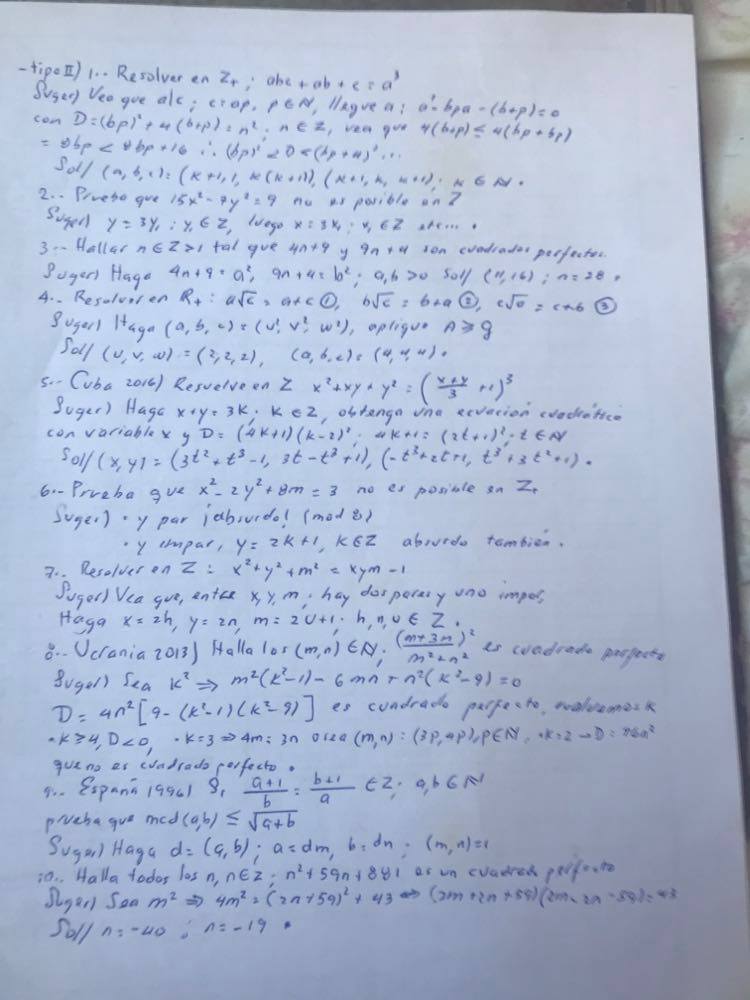 -tipo II) 1.- Resolver en Z₊ ; abc + ab + c = a³
Suger) Vea que a|c ; c = ap, p ∈ N, llegue a ; a² - bpa - (b+p) = 0
con D = (bp)² + 4(b+p) = n² ; n ∈ Z, vea que 4(b+p) ≤ 4(bp+bp)
= 8bp < 8bp+16 ∴ (bp)² < D < (bp+4)² ...
Sol// (a, b, c) = (k+1, 1, k(k+1)), (k+1, k, k+1) ; k ∈ N .
2.- Prueba que 15x² - 7y² = 9 no es posible en Z
Suger) y = 3y₁ ; y₁ ∈ Z, luego x = 3x₁ ; x₁ ∈ Z etc... .
3.- Hallar n ∈ Z > 1 tal que 4n+9 y 9n+4 son cuadrados perfectos.
Suger) Haga 4n+9 = a², 9n+4 = b² ; a, b > 0 Sol// (11, 16) ; n = 28 .
4.- Resolver en R₊ : a√c = a+c ①, b√c = b+a ②, c√a = c+b ③
Suger) Haga (a, b, c) = (u², v², w²), aplique A ≥ g
Sol// (u, v, w) = (2, 2, 2), (a, b, c) = (4, 4, 4) .
5.- Cuba 2016) Resuelve en Z x² + xy + y² = ((x+y)/3 + 1)³
Suger) Haga x+y = 3k ; k ∈ Z, obtenga una ecuación cuadrática
con variable x y D = (4k+1)(k-2)² ; 4k+1 = (2t+1)² ; t ∈ N
Sol// (x, y) = (3t² + t³ - 1, 3t - t³ + 1), (-t³ + 2t + 1, t³ + 3t² + 1) .
6.- Prueba que x² - 2y² + 8m = 3 no es posible en Z₊
Suger) • y par ¡absurdo! (mod 8)
• y impar, y = 2k+1, k ∈ Z absurdo también .
7.- Resolver en Z : x² + y² + m² = xym - 1
Suger) Vea que, entre x, y, m ; hay dos pares y uno impar,
Haga x = 2h, y = 2n, m = 2u+1 ; h, n, u ∈ Z .
8.- Ucrania 2013) Halla los (m, n) ∈ N ; (m+3n)²/(m²+n²) es cuadrado perfecto
Suger) Sea k² ⇒ m²(k²-1) - 6mn + n²(k²-9) = 0
D = 4n²[9 - (k²-1)(k²-9)] es cuadrado perfecto, evaluemos k
• k ≥ 4, D < 0, • k = 3 ⇒ 4m = 3n o sea (m, n) = (3p, 4p), p ∈ N, • k = 2 ⇒ D = 96n²
que no es cuadrado perfecto .
9.- España 1996) Si (a+1)/b = (b+1)/a ∈ Z ; a, b ∈ N
prueba que mcd(a, b) ≤ √(a+b)
Suger) Haga d = (a, b) ; a = dm, b = dn ; (m, n) = 1
10.- Halla todos los n, n ∈ Z ; n² + 59n + 881 es un cuadrado perfecto
Suger) Sea m² ⇒ 4m² = (2n+59)² + 43 ⇔ (2m+2n+59)(2m-2n-59) = 43
Sol// n = -40 ; n = -19 .